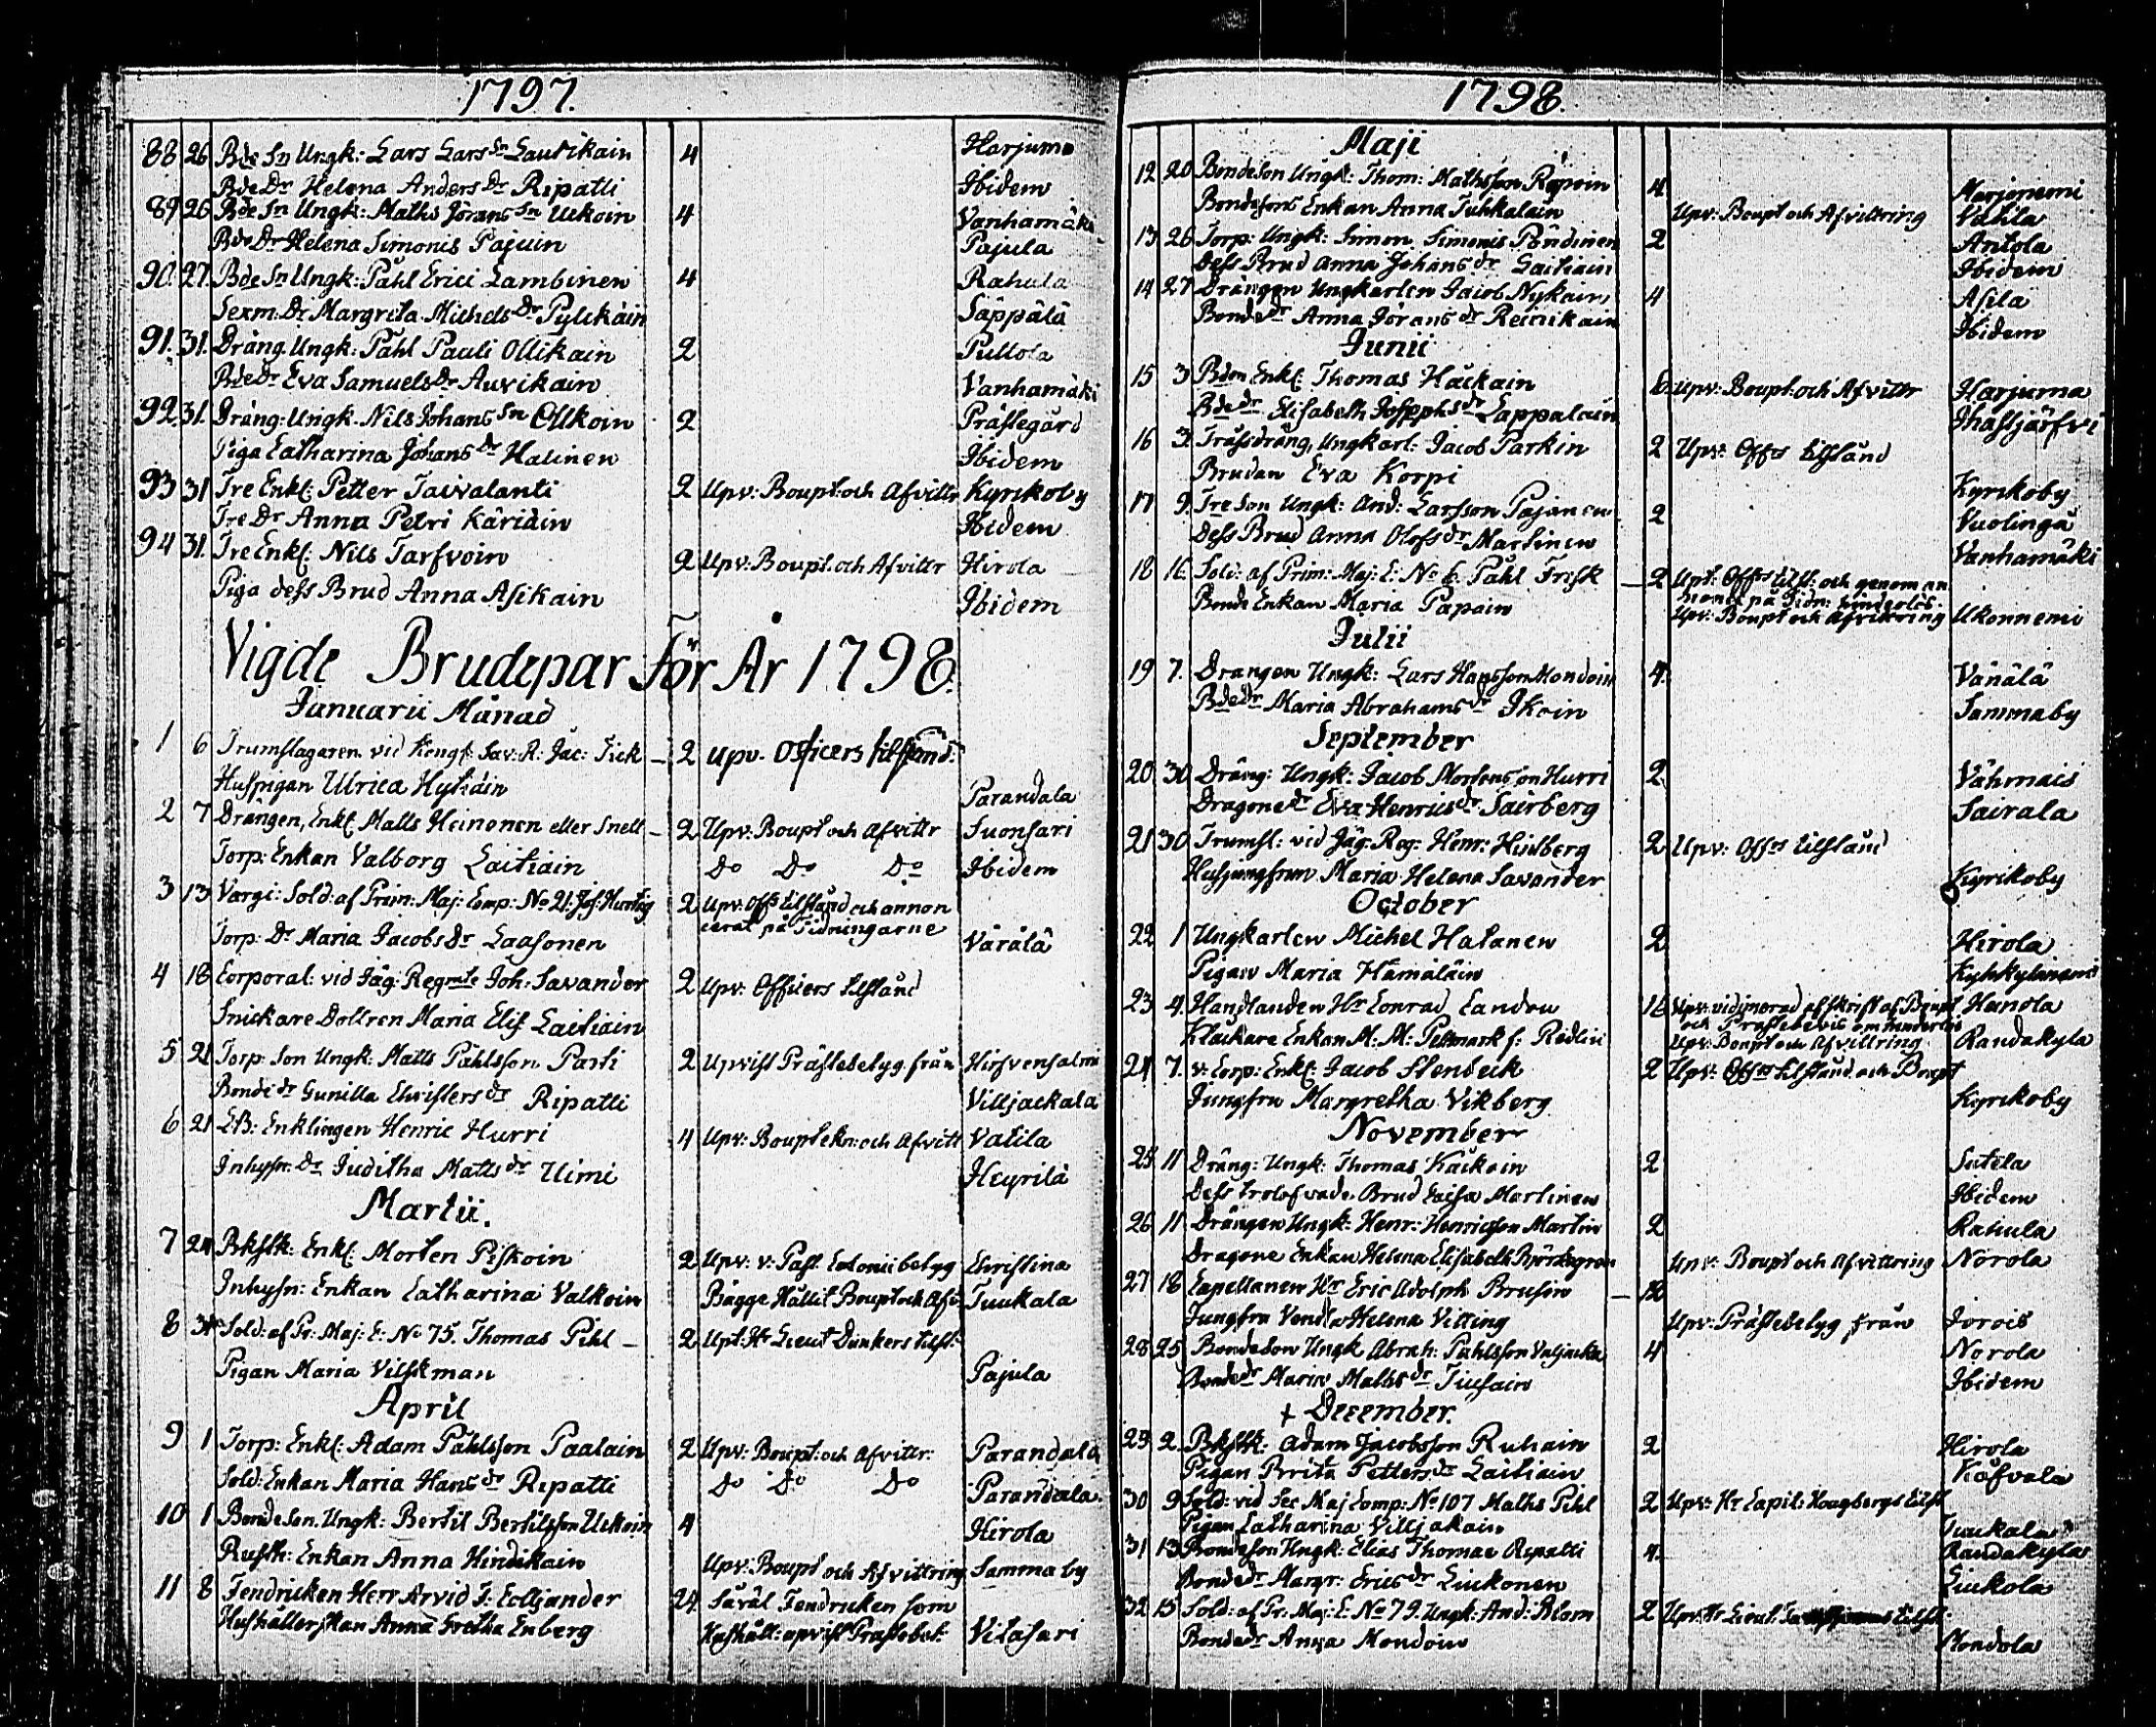 1797.
88 26 Bde Sn Ungk: Lars Lars Sn Lautikain 4 Harjuma
Bde Dr Helena Anders Dr Ripatti Ibidem
89 26 Bde Sn Ungk: Maths Jörans Sn Uckoin 4 Vanhamäki
Bde Dr Helena Simonis Pajuin Pajula
90. 27. Bde Sn Ungk: Påhl Erici Lambinen 4 Rahula
Sexm: Dr Margreta Michels Dr Pylckäin Säppälä
91. 31. Dräng. Ungk: Påhl Pauli Ollikain 2 Pullola
Bde Dr Eva Samuels Dr Auvikain Vanhamäki
92. 31. Dräng: Ungk. Nils Johans Sn Ollkoin 2 Prästegård
Piga Catharina Johans Dr Halinen Ibidem
93 31 Tre Enkl: Petter Taivalanti 2 Upv: Boupt: och Afvittr Kyrikoby
Tre Dr Anna Petri Käriäin Ibidem
94 31. Tre Enkl: Nils Tarfvoin 2 Upv: Boupt. och Afvittr Hirola
Piga dess Brud Anna Asikain Ibidem
Vigde Brudepar För År 1798.
Januarii Månad
1 6 Trumslagaren vid Kongl: Sav: R: Jac: Fick 2 Upv. Officers tillstånd:
Huspigan Ulrica Hytiäin Parandala
2 7 Drängen, Enkl. Matts Heinonen eller Snell 2 Upv: Boupt och Afvittr Suonsari
Torp: Enkan Valborg Laitiain Do Do Do Ibidem
3 13 Vargi: Sold: af Prim: Maj: Comp: No 21: Joh: Hurtig 2 Upv: Offs tillstånd och annon
cerat på Tidningarne
Torp: Dr Maria Jacobs Dr Laasonen Värälä
4 18 Corporal: vid Jäg: Regmte Joh: Savander 2 Upv: Officers tillstånd
Snickare Dottren Maria Elis Laitiain
5 21 Torp: Son Ungk: Matts Påhlsson Parti 2 Upvist Prästebetyg från Hirfvensalmi
Bonde dr Gunilla Christers dr Ripatti Villjackala
6 21 Enklingen Henric Hurri 4 Upv: Boupteckn: och Afvitt Vatila
Inhysn: Dr Juditha Matts dr Uimi Heyrilä
Martii.
7 24 Bkstk: Enkl: Morten Piskoin 2 Upv: v: Past: Colonii betyg Christina
Inhysn: Enkan Catharina Valkoin Bägge Hållit Boupt och Afv: Tuukala
8 31 Sold: af Pr: Maj: C: No 75. Thomas Pihl 2 Upt: Hr Lieut Dunkers tillst:
Pigan Maria Vilskman Pajula
April
9 1 Torp: Enkl: Adam Påhlsson Paalain 2 Upv: Boupt: och Afvittr: Parandala
Sold: Enkan Maria Hans dr Ripatti Do Do Do Parandala
10 1 Bonde Son. Ungk: Bertil Bertilsson Uckoin 4 Hirola
Rusth: Enkan Anna Hindikain Upv: Boupt och Afvittring Sammaby
11 8 Fendricken Herr Arvid J: Colljander 24 Såväl Fendricken som
Hushållerskan Anna Gretha Enberg Hushåll: upvist Prästebet. Vitasari
1798.
Maji
12 20 Bondeson Ungk: Thom: Mathsson Ropoin 4 Marjoniemi
Bondesons Enkan Anna Tuhkalain Upv: Boupt och Afvittring Vatila
13 26 Torp: Ungk: Simon Simonis Pöndinen 2 Antola
Dess Brud Anna Johans dr Laitiain Ibidem
14 27 Drängen Ungkarlen Jacob Nykain 4 Asila
Bonde dr Anna Jörans dr Reinikain Ibidem
Junii
15 3 Bden Enkl: Thomas Häckain 6 Upv: Boupt: och Afvittr Harjuma
Bde dr Elisabeth Josephs dr Lappalain
16 3. Träfsdräng, Ungkarl: Jacob Parkin 2 Upv: Offrs tillstånd
Brudan Eva Korpi Kyrikoby
17 9. Tre Son Ungk: And: Larsson Pajanen 2 Vuolinga
Dess Brud Anna Olofs dr Martinen Vanhamäki
18 16. Sold: af Prim: Maj: C: No 6 Påhl Frisk 2 Upt: Offrs tillst: och genom an
nons på Tidn: hinderlös.
Bonde Enkan Maria Papain Upv: Boupt och Afvittring Ukonnemi
Julii
19 7. Drängen Ungk: Lars Hansson Mondoin 4 Vänälä
Bde dr Maria Abrahams dr Ikoin Sammaby
September
20 30 Dräng: Ungk: Jacob Mortensson Hurri 2 Vähmais
Dragone dr Eva Henrics dr Sairberg Sairala
21 30 Trumsl: vid Jäg: Reg: Henr: Hindberg 2 Upv: Offrs tillstånd
Husjungfrun Maria Helena Savander Kyrikoby
October
22 1 Ungkarlen Michel Hatanen 2 Hirola
Pigan Maria Hämäläin
23 4. Handlanden Hr Conrad Candon 16 Upv: vidimerad afskrift af Boupt Heinola
och Prästebevis om hinderlös
Klockare Enkan M: M: Pettmark f: Redlin Upv: Boupt och Afvittring Randakyla
24 7. v: Corp: Enkl: Jacob Stenbeck 2 Upv: Offrs tillstånd och Boupt
Jungfru Margretha Vikberg Kyrikoby
November
25 11 Dräng: Ungk: Thomas Käckain 2 Sutela
Dess trolofvade Brud Caisa Martinen Ibidem
26 11 Drängen Ungk: Henr: Henricsson Martin 2 Rahula
Dragone Enkan Helena Elisabeth Björckgren Upv: Boupt och Afvittring Norola
27 18 Capellanen Hr Eric Adolph Brusin
Jungfru Vendla Helena Vitting Upv: Prästebetyg från Jorois
28 25 Bondeson Ungk Abrah: Påhlsson Viljacka 4 Norola
Bonde dr Maria Maths dr Tiusain Ibidem
+ December.
29 2 Bkstk: Adam Jacobsson Ruhain 2 Hirola
Pigan Brita Petters dr Laitiain Käfvala
30 9 Sold: vid Sec Maj Comp: No 107 Maths Pihl 2 Upv: Hr Capit: Hougbergs tillst
Pigan Catharina Villjakain Tuukala
31 13 Bondeson Ungk: Elias Thomae Ripatti 4 Randakylä
Bonde dr Margr: Erics dr Liukonen Liukola
32 15 Sold: af Pr: Maj: C: No 79. Ungk: And: Blom 2 Upv: Hr Lieut: tillst.
Bonde dr Anna Mondoin Mondola